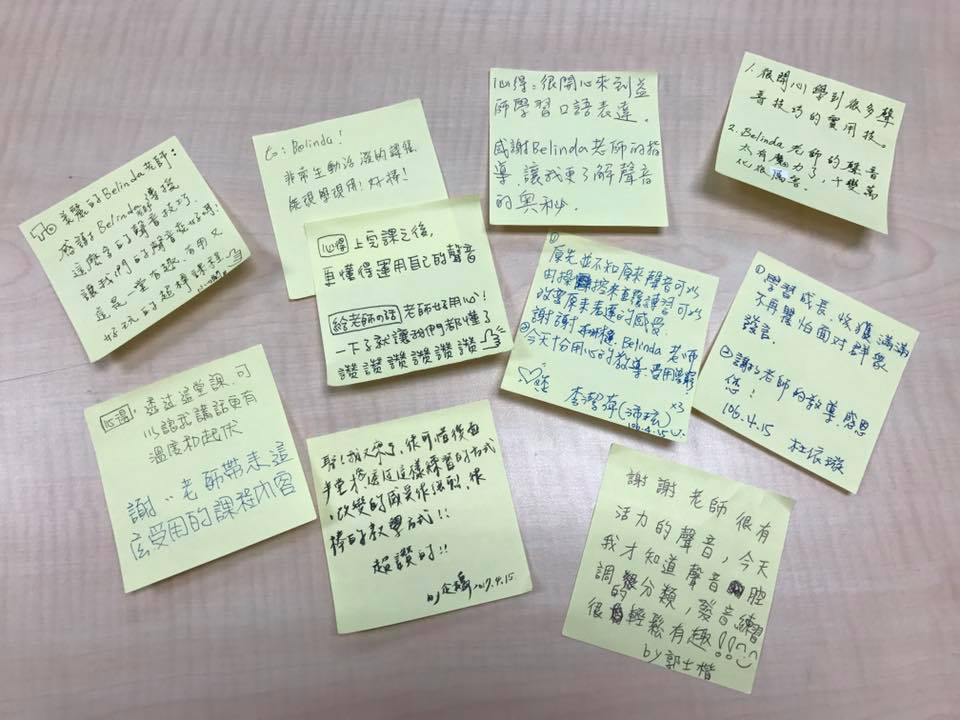 To 美麗的Belinda老師：
感謝Belinda
這麼多的聲音技巧，
讓我們的聲音
這是一堂有趣、實用又
好玩的超棒課程
to：Belinda！
非常生動活潑的課程
能現學現用！好棒！
心得：很開心來到益
師學習口語表達．
感謝Belinda老師的指
導，讓我更了解聲音
的奧秘．
1. 很開心學到很多聲
音技巧的實用技．
2. Belinda老師的聲音
太有魔力了，千變萬
化很厲害．
心得 上完課之後，
更懂得運用自己的聲音
給老師の話 老師好用心！
一下子就讓我們都懂了
讚讚讚讚讚讚讚
①
原先並不知原來聲音可以
由操控來重複練習可以
改變原來表達的感受．
②謝謝 Belinda老師
今天十分用心的教導
106.4.15
① 學習成長．收獲滿滿
不再懼怕面對群眾
發言．
② 謝謝老師的教導．感恩
您！
106.4.15
心得：透過這堂課，可
以讓我講話更有
溫度和起伏
謝謝老師帶來這
麼受用的課程內容
很可惜後面
半堂
改變的感受很強烈．很
棒的教學方式！！
超讚的！！
by 2017.4.15
謝謝老師很有
活力的聲音，今天
我才知道聲音腔
調的分類，發音練習
很輕鬆有趣！！
by郭士楷